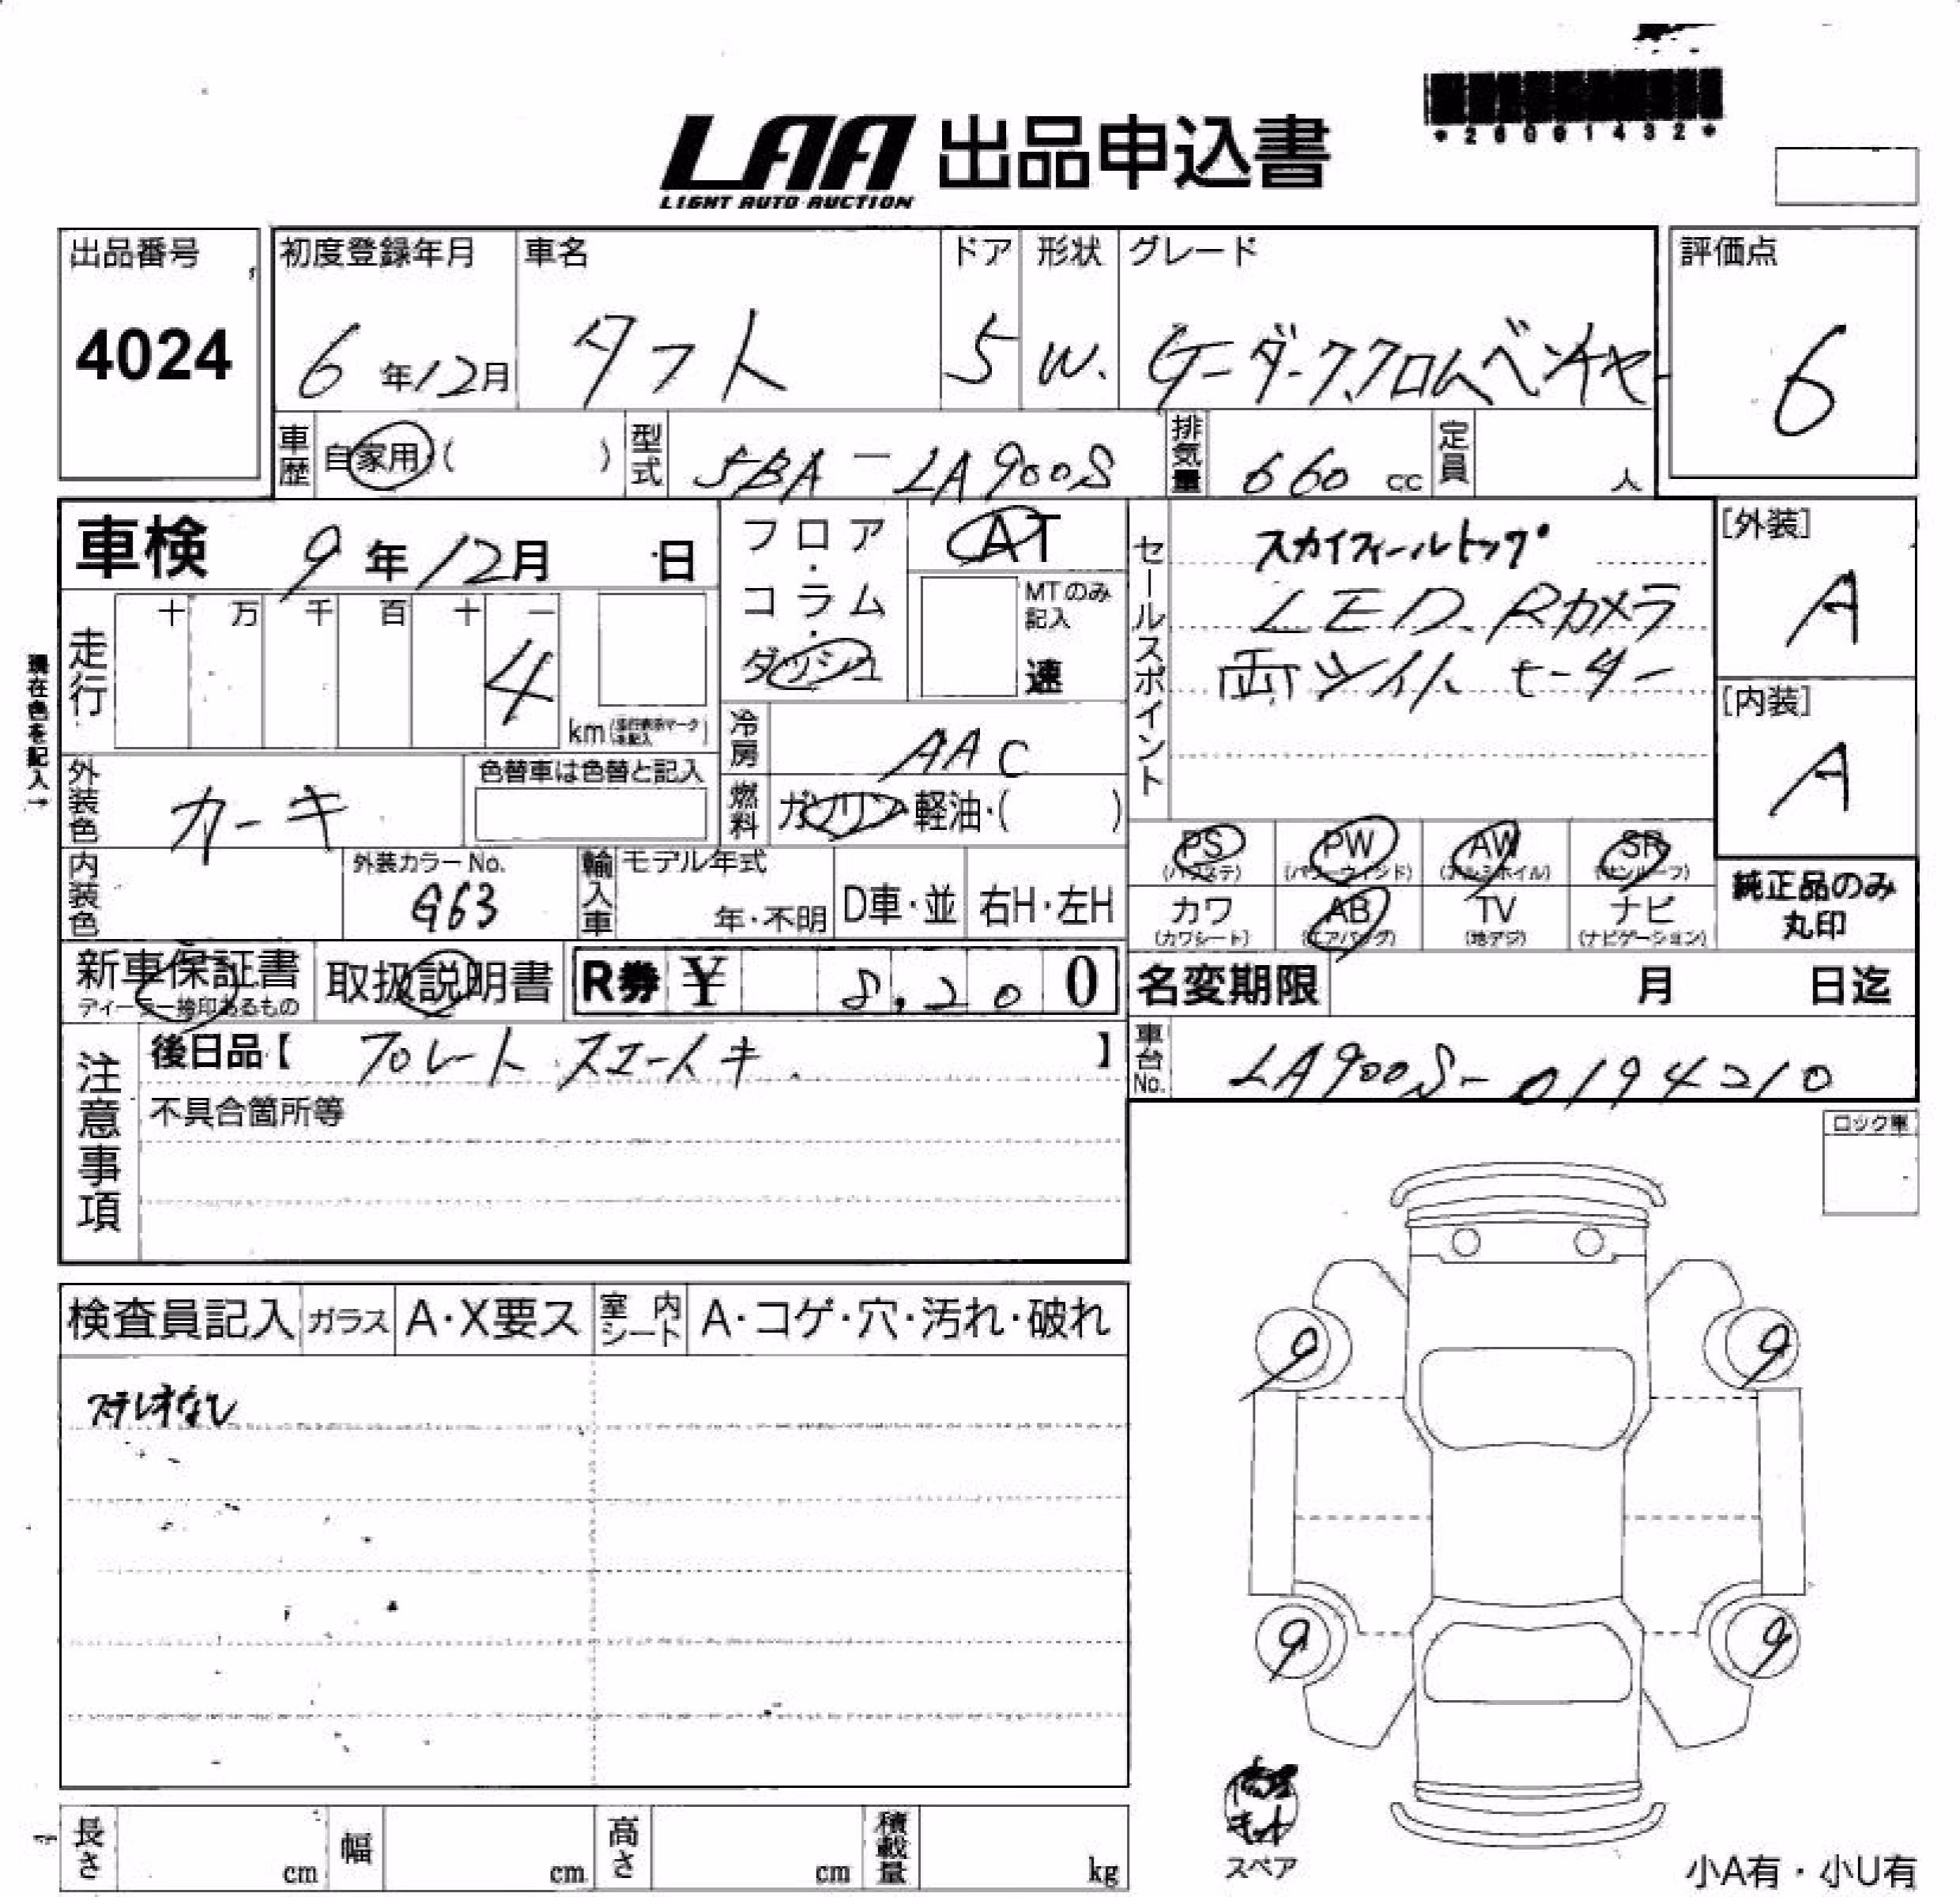 *26001432*
LAA 出品申込書
LIGHT AUTO AUCTION
出品番号
4024
初度登録年月
6年12月
車名
タフト
ドア
5
形状
W.
グレード
Gーダーククロムベンチャー
評価点
6
車歴
自家用・( )
型式
5BA-LA900S
排気量
660 cc
定員
人
車検 9年12月 日
走行
十 万 千 百 十 一
4
km
現在色を記入→
フロア・コラム・ダッシュ
AT
MTのみ記入
速
冷房
AAC
燃料
ガソリン・軽油・( )
セールスポイント
スカイフィールトップ
LED Rカメラ
両シートヒーター
[外装]
A
[内装]
A
外装色
カーキ
色替車は色替と記入
内装色
外装カラーNo.
G63
輸入車
モデル年式
年・不明
D車・並
右H・左H
PS
(パワステ)
PW
(パワーウィンド)
AW
(アルミホイル)
SR
(サンルーフ)
カワ
(カワシート)
AB
(エアバッグ)
TV
(地デジ)
ナビ
(ナビゲーション)
純正品のみ
丸印
新車保証書
ディーラー捺印あるもの
取扱説明書
R券 ¥ 8,200
名変期限 月 日迄
車台No.
LA900S-0194210
注意事項
後日品【 プレート 】
不具合箇所等
ロック車
検査員記入
ガラス
A・X要ス
室内シート
A・コゲ・穴・汚れ・破れ
ステレオなし
9
9
9
9
キット
スペア
長さ cm
幅 cm
高さ cm
積載量 kg
小A有・小U有